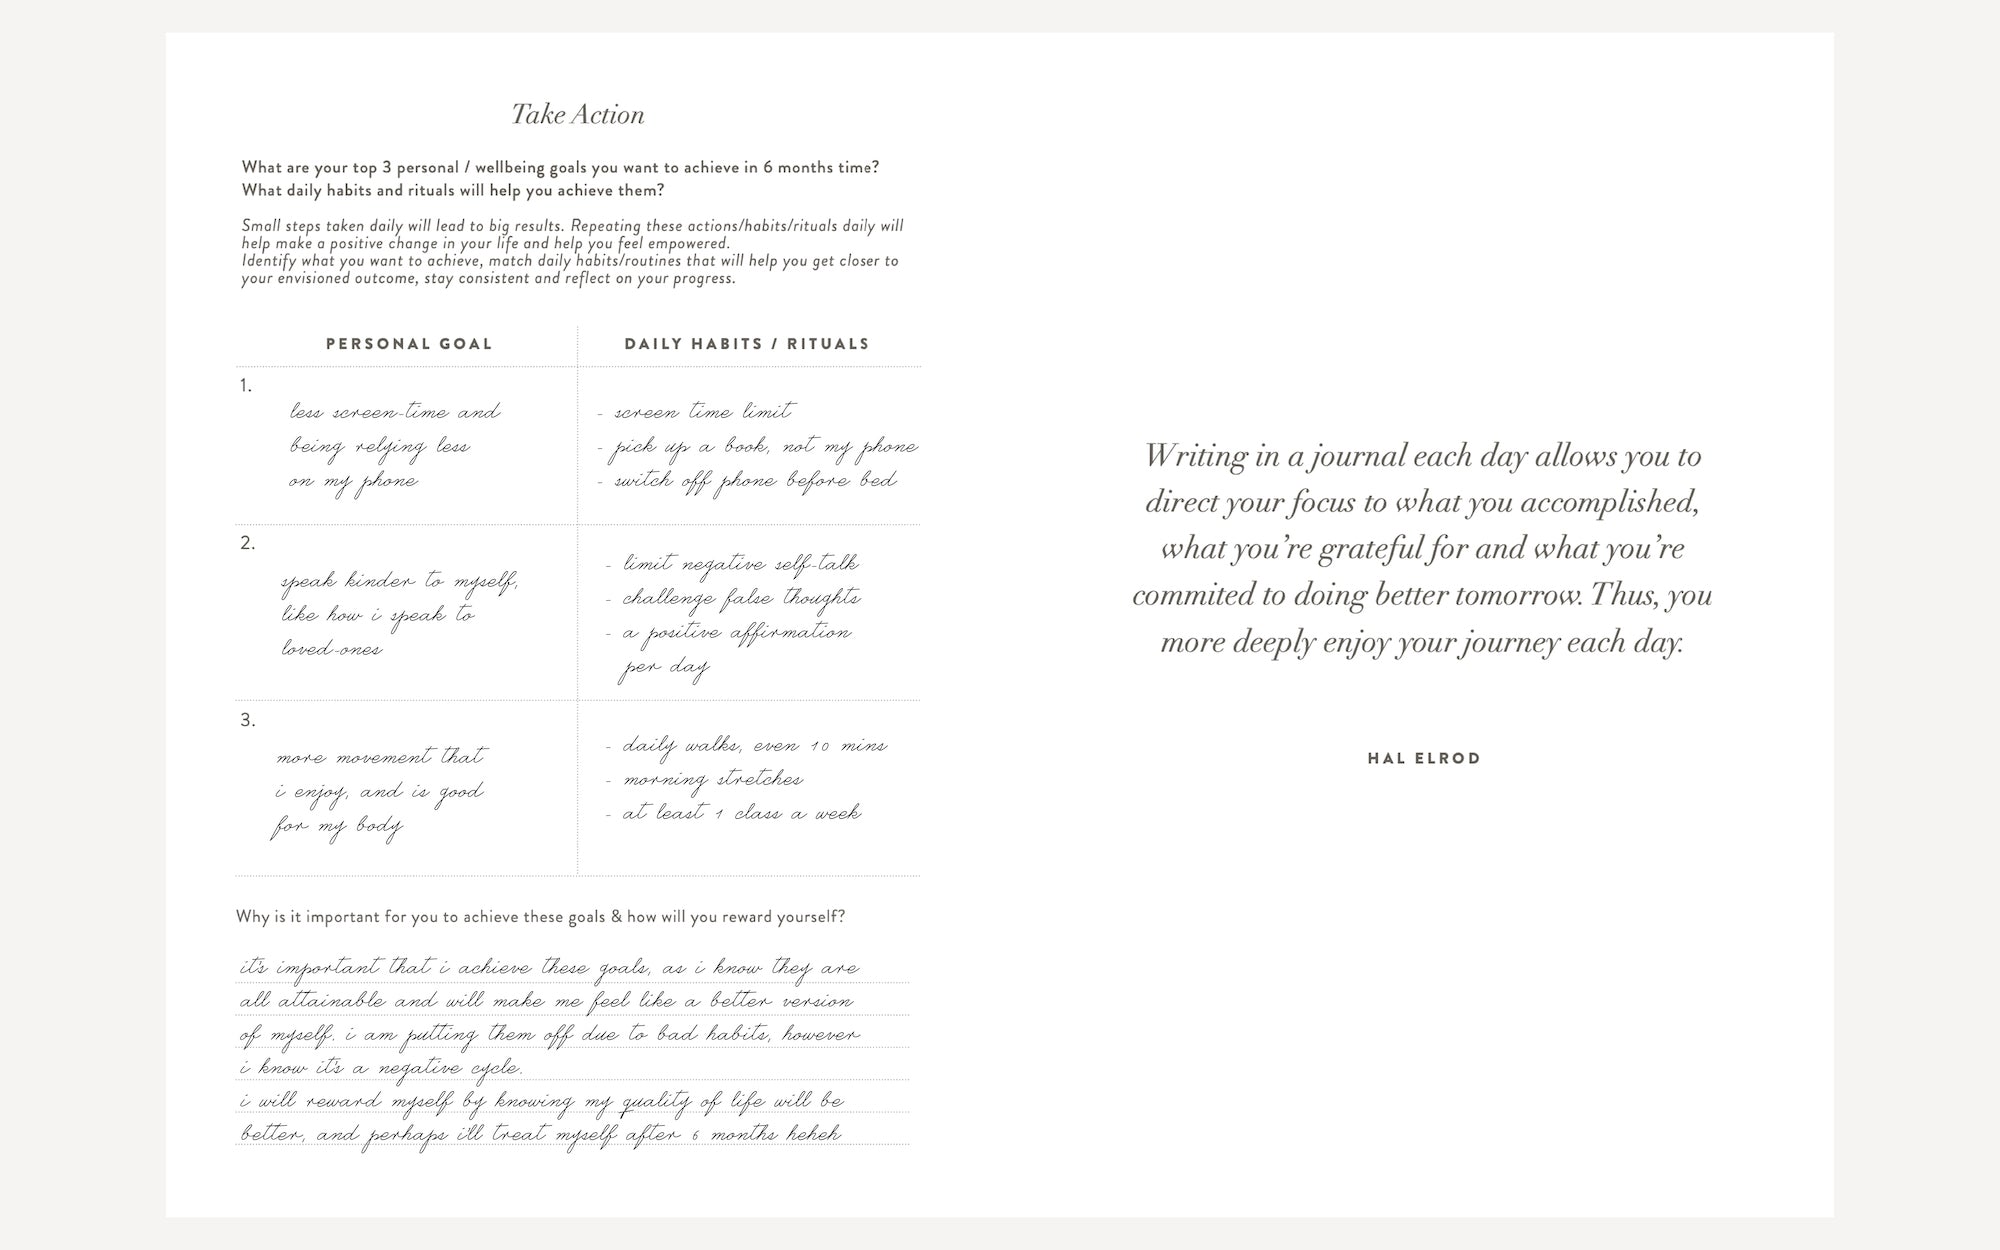 Take Action
What are your top 3 personal / wellbeing goals you want to achieve in 6 months time?
What daily habits and rituals will help you achieve them?
Small steps taken daily will lead to big results. Repeating these actions/habits/rituals daily will
help make a positive change in your life and help you feel empowered.
Identify what you want to achieve, match daily habits/routines that will help you get closer to
your envisioned outcome, stay consistent and reflect on your progress.
PERSONAL GOAL
DAILY HABITS / RITUALS
1.
less screen-time and
being relying less
on my phone
- screen time limit
- pick up a book, not my phone
- switch off phone before bed
2.
speak kinder to myself,
like how i speak to
loved-ones
- limit negative self-talk
- challenge false thoughts
- a positive affirmation
per day
3.
more movement that
i enjoy, and is good
for my body
- daily walks, even 10 mins
- morning stretches
- at least 1 class a week
Why is it important for you to achieve these goals & how will you reward yourself?
it's important that i achieve these goals, as i know they are
all attainable and will make me feel like a better version
of myself. i am putting them off due to bad habits, however
i know it's a negative cycle.
i will reward myself by knowing my quality of life will be
better, and perhaps i'll treat myself after 6 months heheh
Writing in a journal each day allows you to
direct your focus to what you accomplished,
what you're grateful for and what you're
commited to doing better tomorrow. Thus, you
more deeply enjoy your journey each day.
HAL ELROD